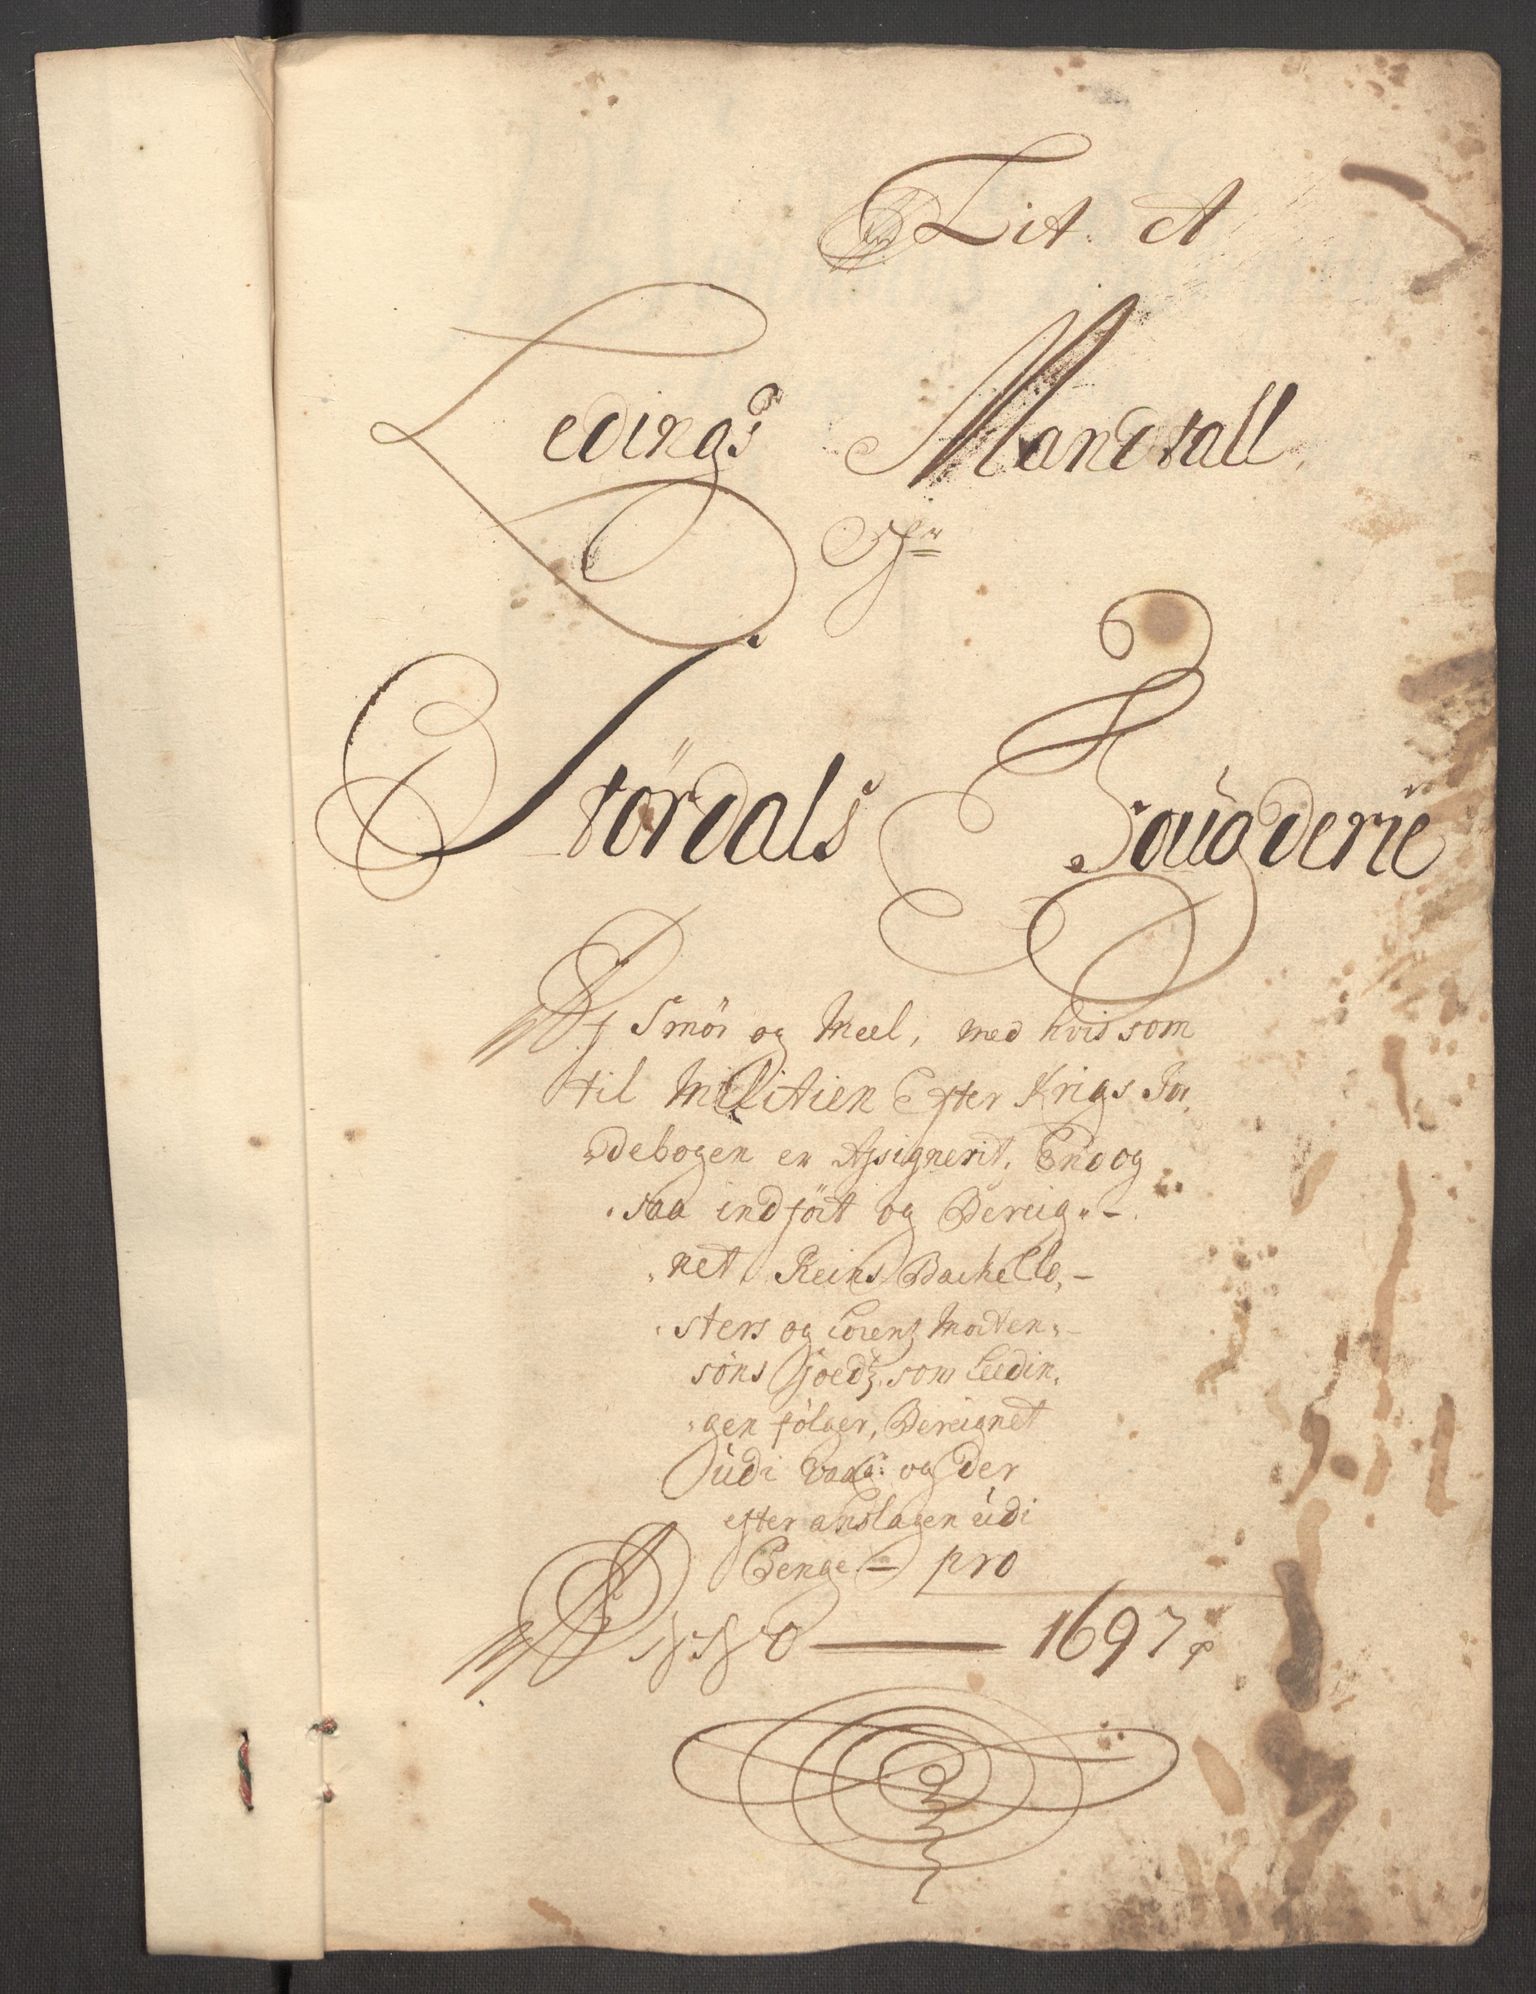 Lit: A
Ledings Mandtall
Størdals Fougderie
Smör og Meel, med hvis som
til Militien Efter Krigs Jor,
debogen er Assignerit, End og
saa indföit og Bereig,,
net Reins Bachelle,
sters og Lorentz Morten,,
søns Goedtz som Leedin,
gen fölger, Bereignet
udi og der
efter anslagen udi
Penge - pro
Anno 1697